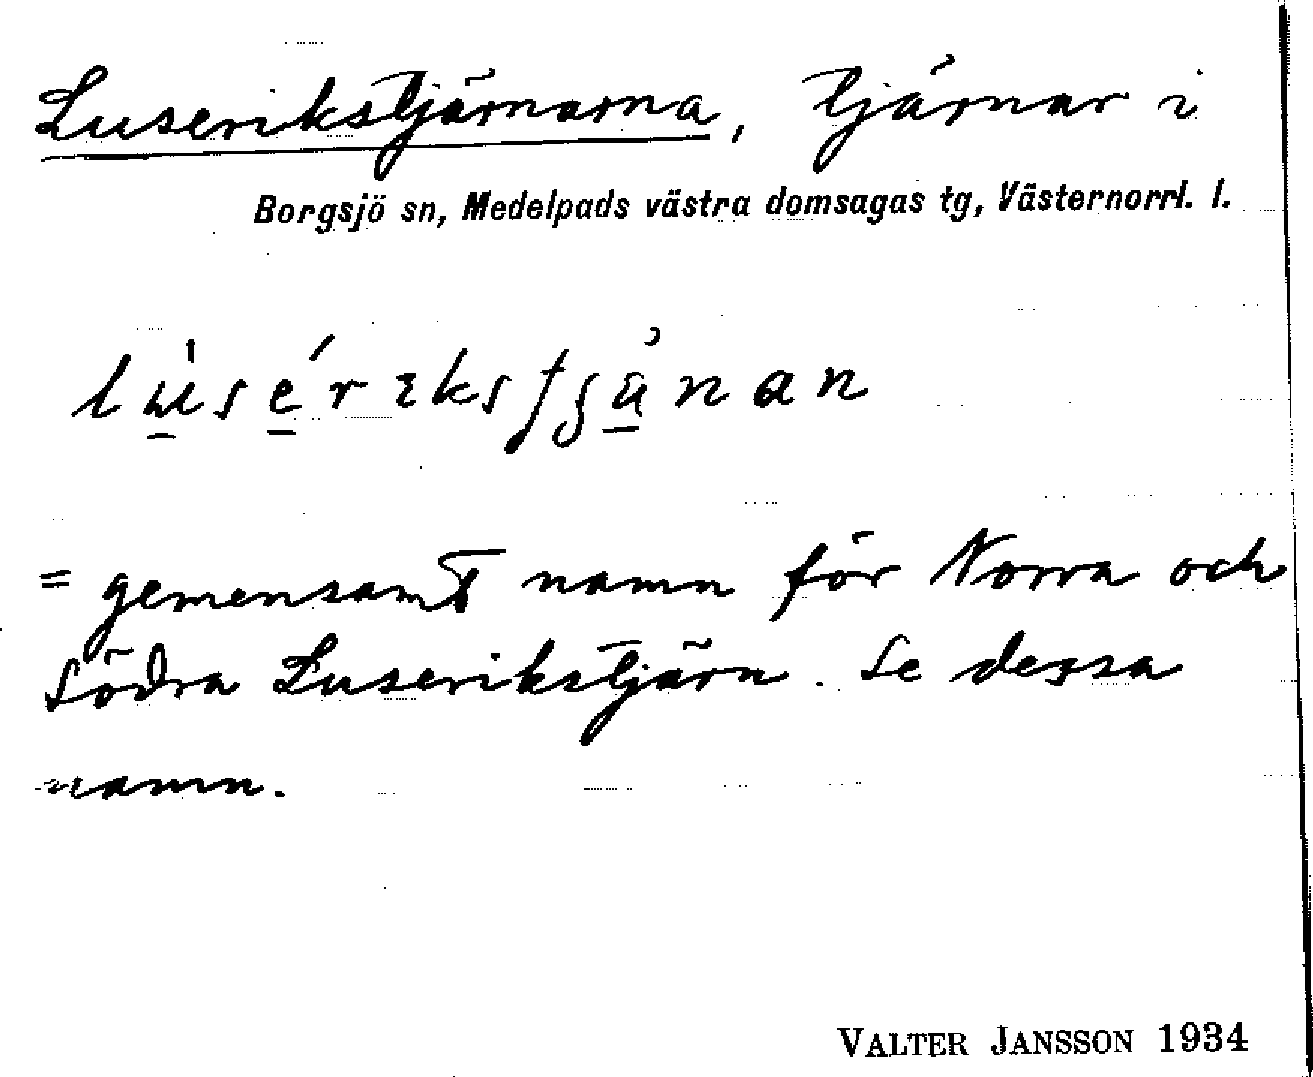 Luserikstjärnarna, tjärnar i
Borgsjö sn, Medelpads västra domsagas tg, Västernorrl. l.
= gemensamt namn för Norra och
Södra Luserikstjärn. Se dessa
namn.
VALTER JANSSON 1934